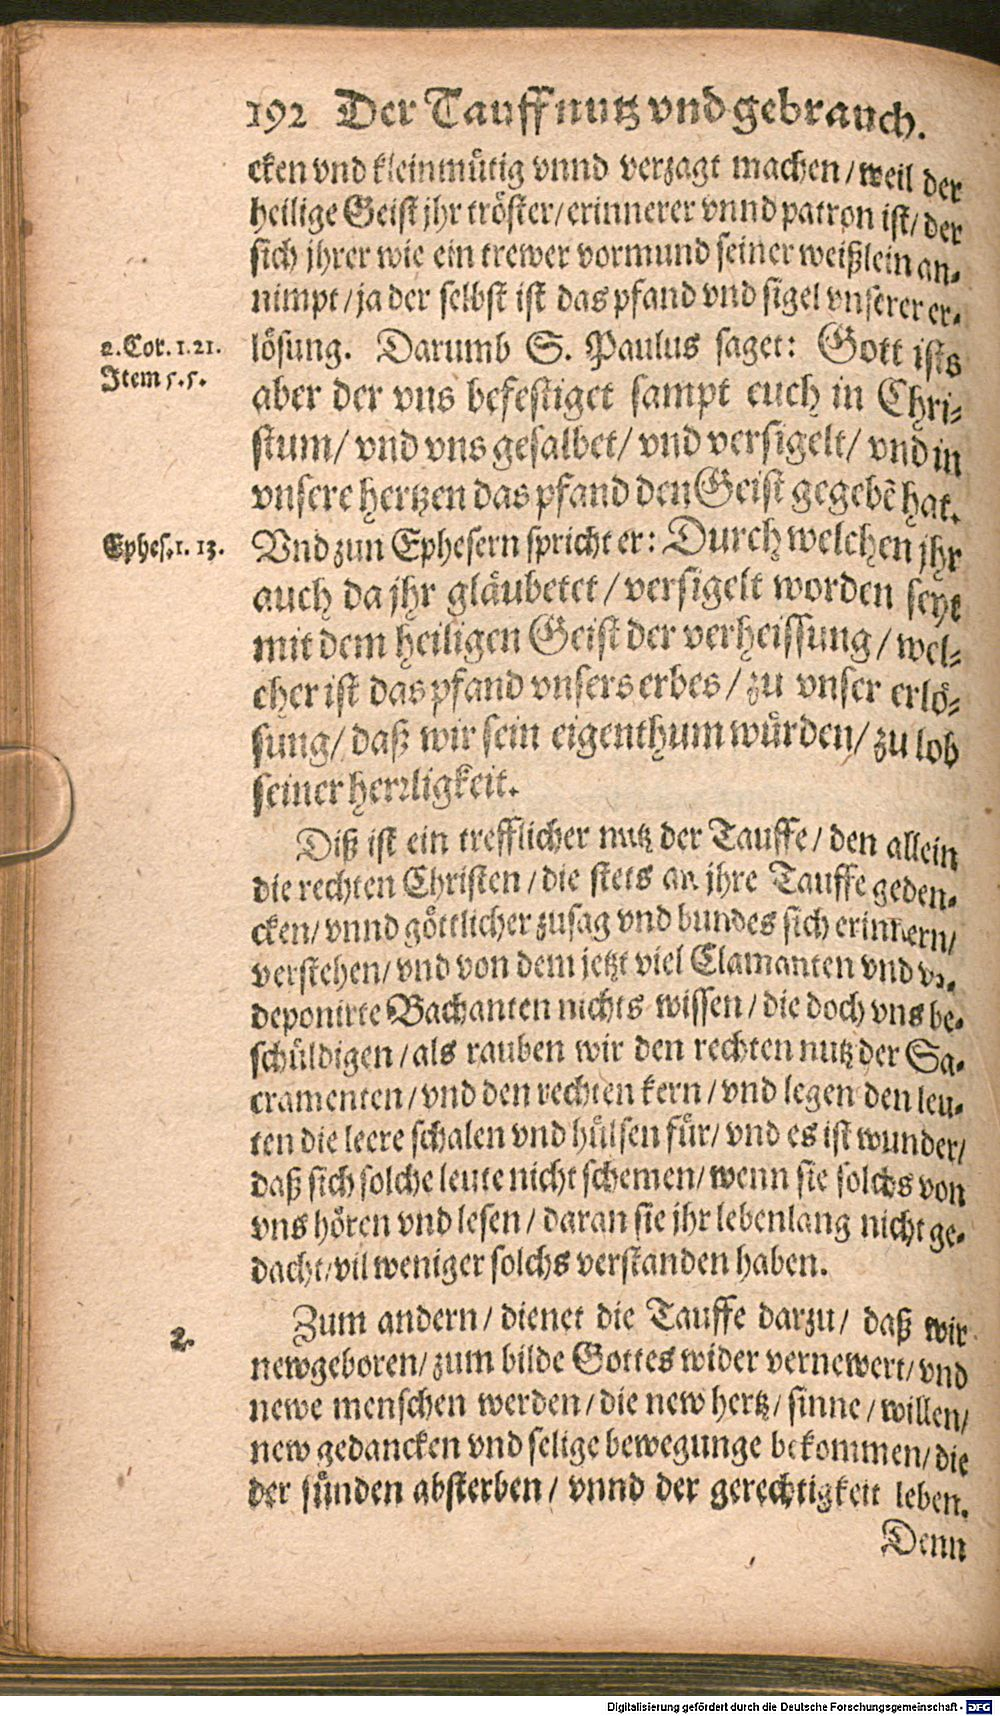 192 Der Tauff nutz vnd gebrauch.
cken vnd kleinmütig vnnd verzagt machen/ weil der
heilige Geist jhr tröster/ erinnerer vnnd patron ist/ der
sich jhrer wie ein trewer vormund seiner weißlein an-
nimpt/ ja der selbst ist das pfand vnd sigel vnserer er-
2.Cor.1.21.
Item 5.5.
lösung. Darumb S. Paulus saget: Gott ists
aber der vns befestiget sampt euch in Chri-
stum/ vnd vns gesalbet/ vnd versigelt/ vnd in
vnsere hertzen das pfand den Geist gegebẽ hat.
Ephes.1.13.
Vnd zun Ephesern spricht er: Durch welchen jhr
auch da jhr gläubetet/ versigelt worden seyt
mit dem heiligen Geist der verheissung/ wel-
cher ist das pfand vnsers erbes/ zu vnser erlö-
sung/ daß wir sein eigenthum würden/ zu lob
seiner herrligkeit.
Diß ist ein trefflicher nutz der Tauffe/ den allein
die rechten Christen/ die stets an jhre Tauffe geden-
cken/ vnnd göttlicher zusag vnd bundes sich erinnern/
verstehen/ vnd von dem jetzt viel Clamanten vnd
deponirte Bachanten nichts wissen/ die doch vns be-
schüldigen/ als rauben wir den rechten nutz der Sa-
cramenten/ vnd den rechten kern/ vnd legen den leu-
ten die leere schalen vnd hülsen für/ vnd es ist wunder/
daß sich solche leute nicht schemen/ wenn sie solchs von
vns hören vnd lesen/ daran sie jhr lebenlang nicht ge-
dacht/ vil weniger solchs verstanden haben.
2.
Zum andern/ dienet die Tauffe darzu/ daß wir
newgeboren/ zum bilde Gottes wider vernewert/ vnd
newe menschen werden/ die new hertz/ sinne/ willen/
new gedancken vnd selige bewegunge bekommen/ die
der sünden absterben/ vnnd der gerechtigkeit leben.
Denn
Digitalisierung gefördert durch die Deutsche Forschungsgemeinschaft - DFG